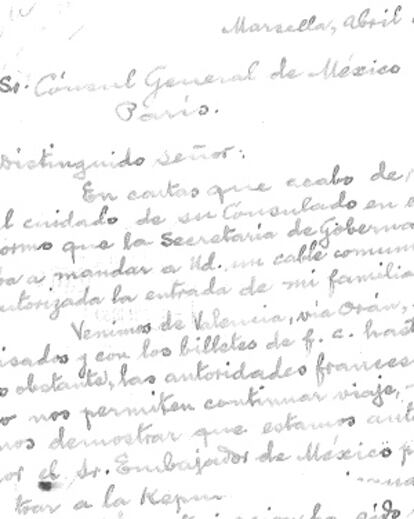 Marsella, Abril
Sr. Cónsul General de México
París.
Distinguido señor:
En cartas que acabo de
l cuidado de su Consulado en e
formo que la Secretaría de Goberna
ba a mandar a Ud. un cable comun
autorizada la entrada de mi familia
Venimos de Valencia, vía Orán,
isados y con los billetes de f. c. hast
o obstante, las autoridades frances
o nos permiten continuar viaje,
mos demostrar que estamos auto
or el Sr. Embajador de México p
trar a la Repu